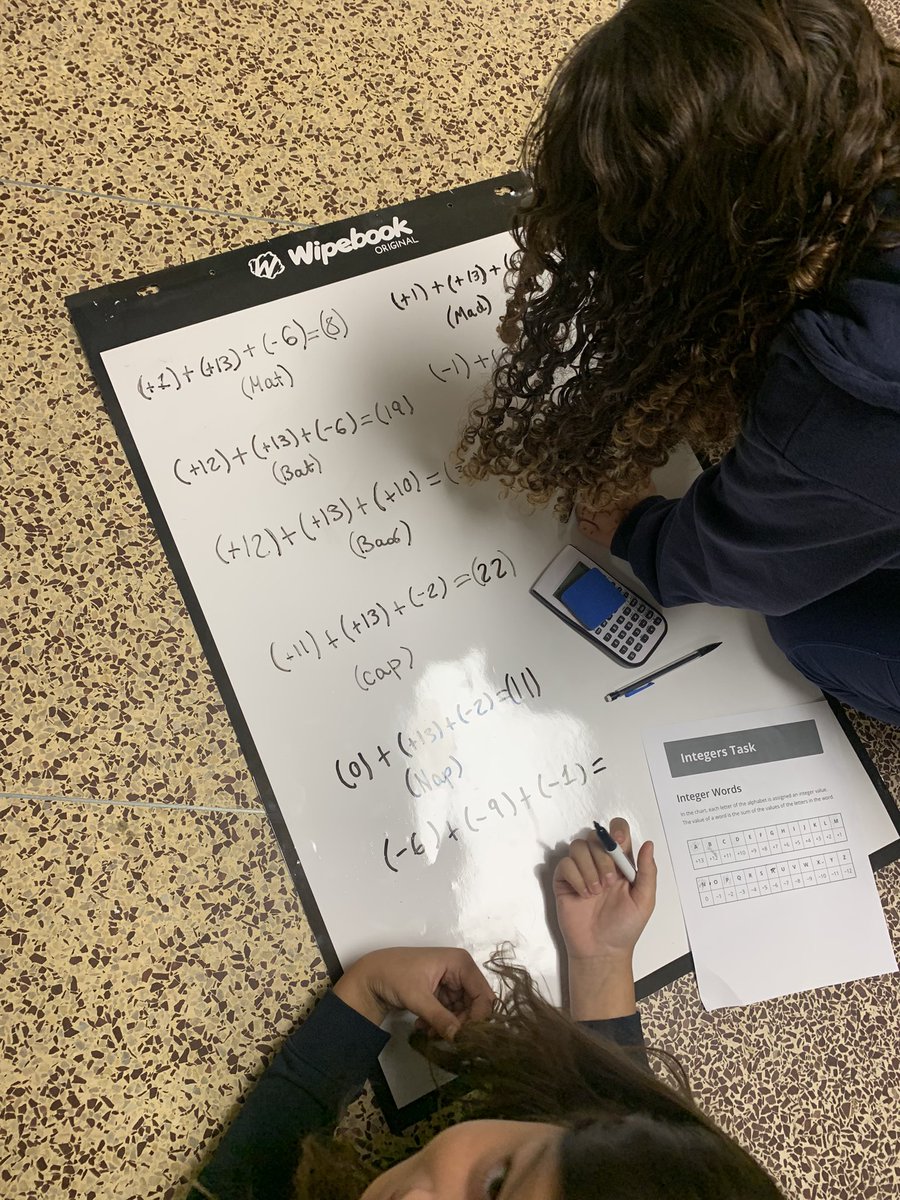 Wipebook
ORIGINAL
(+1) + (+13) + (-6) = (8)
(Mat)
(+1) + (+13) +
(Mad)
(-1) +
(+12) + (+13) + (-6) = (19)
(Bat)
(+12) + (+13) + (+10) =
(Bad)
(+11) + (+13) + (-2) = (22)
(cap)
(0) + (+13) + (-2) = (11)
(Nap)
(-6) + (-9) + (-1) =
Integers Task
Integer Words
In the chart, each letter of the alphabet is assigned an integer value.
The value of a word is the sum of the values of the letters in the word.
A B C D E F G H I J K L M
+13 +12 +11 +10 +9 +8 +7 +6 +5 +4 +3 +2 +1
N O P Q R S T U V W X Y Z
0 -1 -2 -3 -4 -5 -6 -7 -8 -9 -10 -11 -12